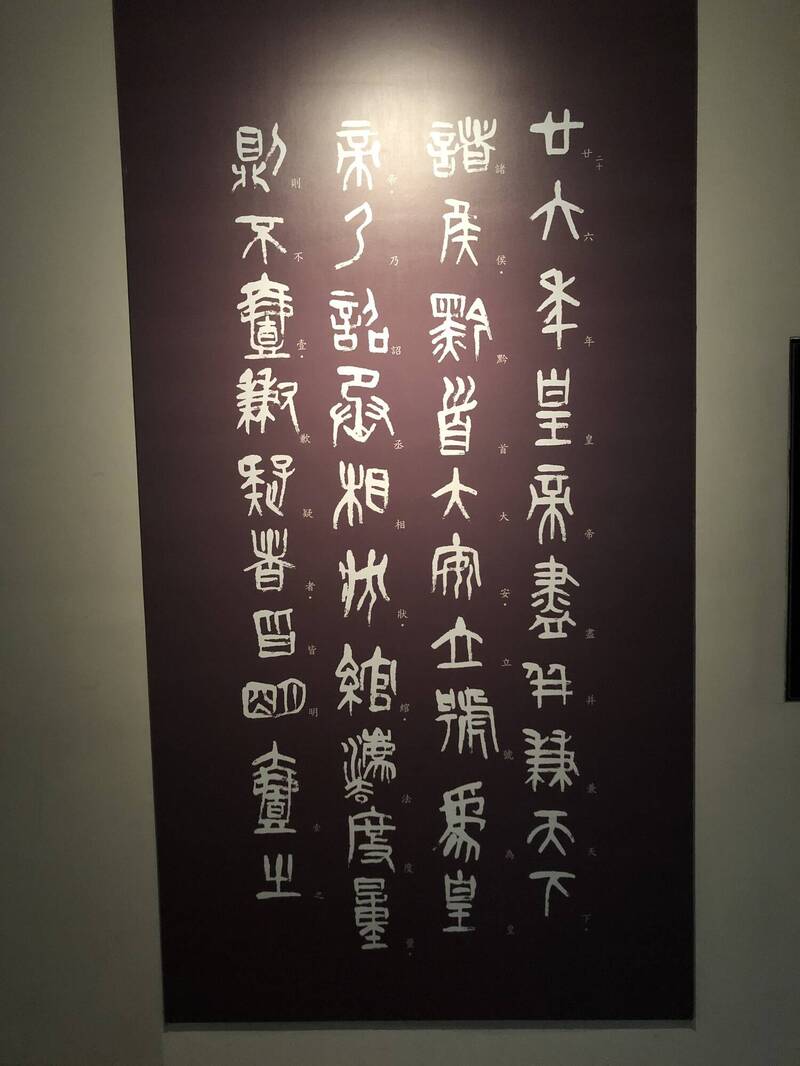 廿六年皇帝盡并兼天下
廿二十六年皇帝盡并兼天下。
諸侯黔首大安立號為皇
諸侯。黔首大安。立號為皇
帝乃詔丞相狀綰灋度量
帝。乃詔丞相狀。綰。法度量。
則不壹歉疑者皆明壹之
則不壹。歉疑者。皆明壹之